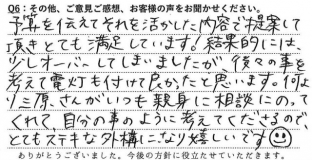 Q6：その他、ご意見ご感想、お客様の声をお聞かせください。
予算を伝えてそれを活かした内容で提案して
頂きとても満足しています。結果的には、
少しオーバーしてしまいましたが後々の事を
考えて電灯も付けて良かったと思います。何よ
り三原さんがいつも親身に相談にのって
くれて、自分の事のように考えてくださるので、
とてもステキな外構になり嬉しいです
ありがとうございました。今後の方針に役立たせていただきます。